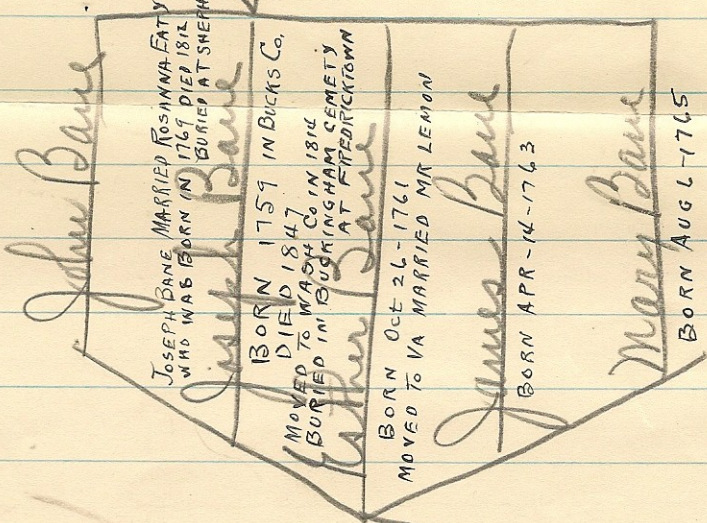 John Bane
JOSEPH BANE MARRIED ROSANNA EATY
WHO WAS BORN IN 1769 DIED 1812
BURIED AT SHEPH
Joseph Bane
BORN 1759 IN BUCKS CO.
DIED 1847
MOVED TO WASH CO IN 1814
BURIED IN BUCKINGHAM CEMETY
AT FREDRICKTOWN
Esther Bane
BORN Oct 26-1761
MOVED TO VA MARRIED MR LEMON
James Bane
BORN APR-14-1763
Mary Bane
BORN AUG 6-1765